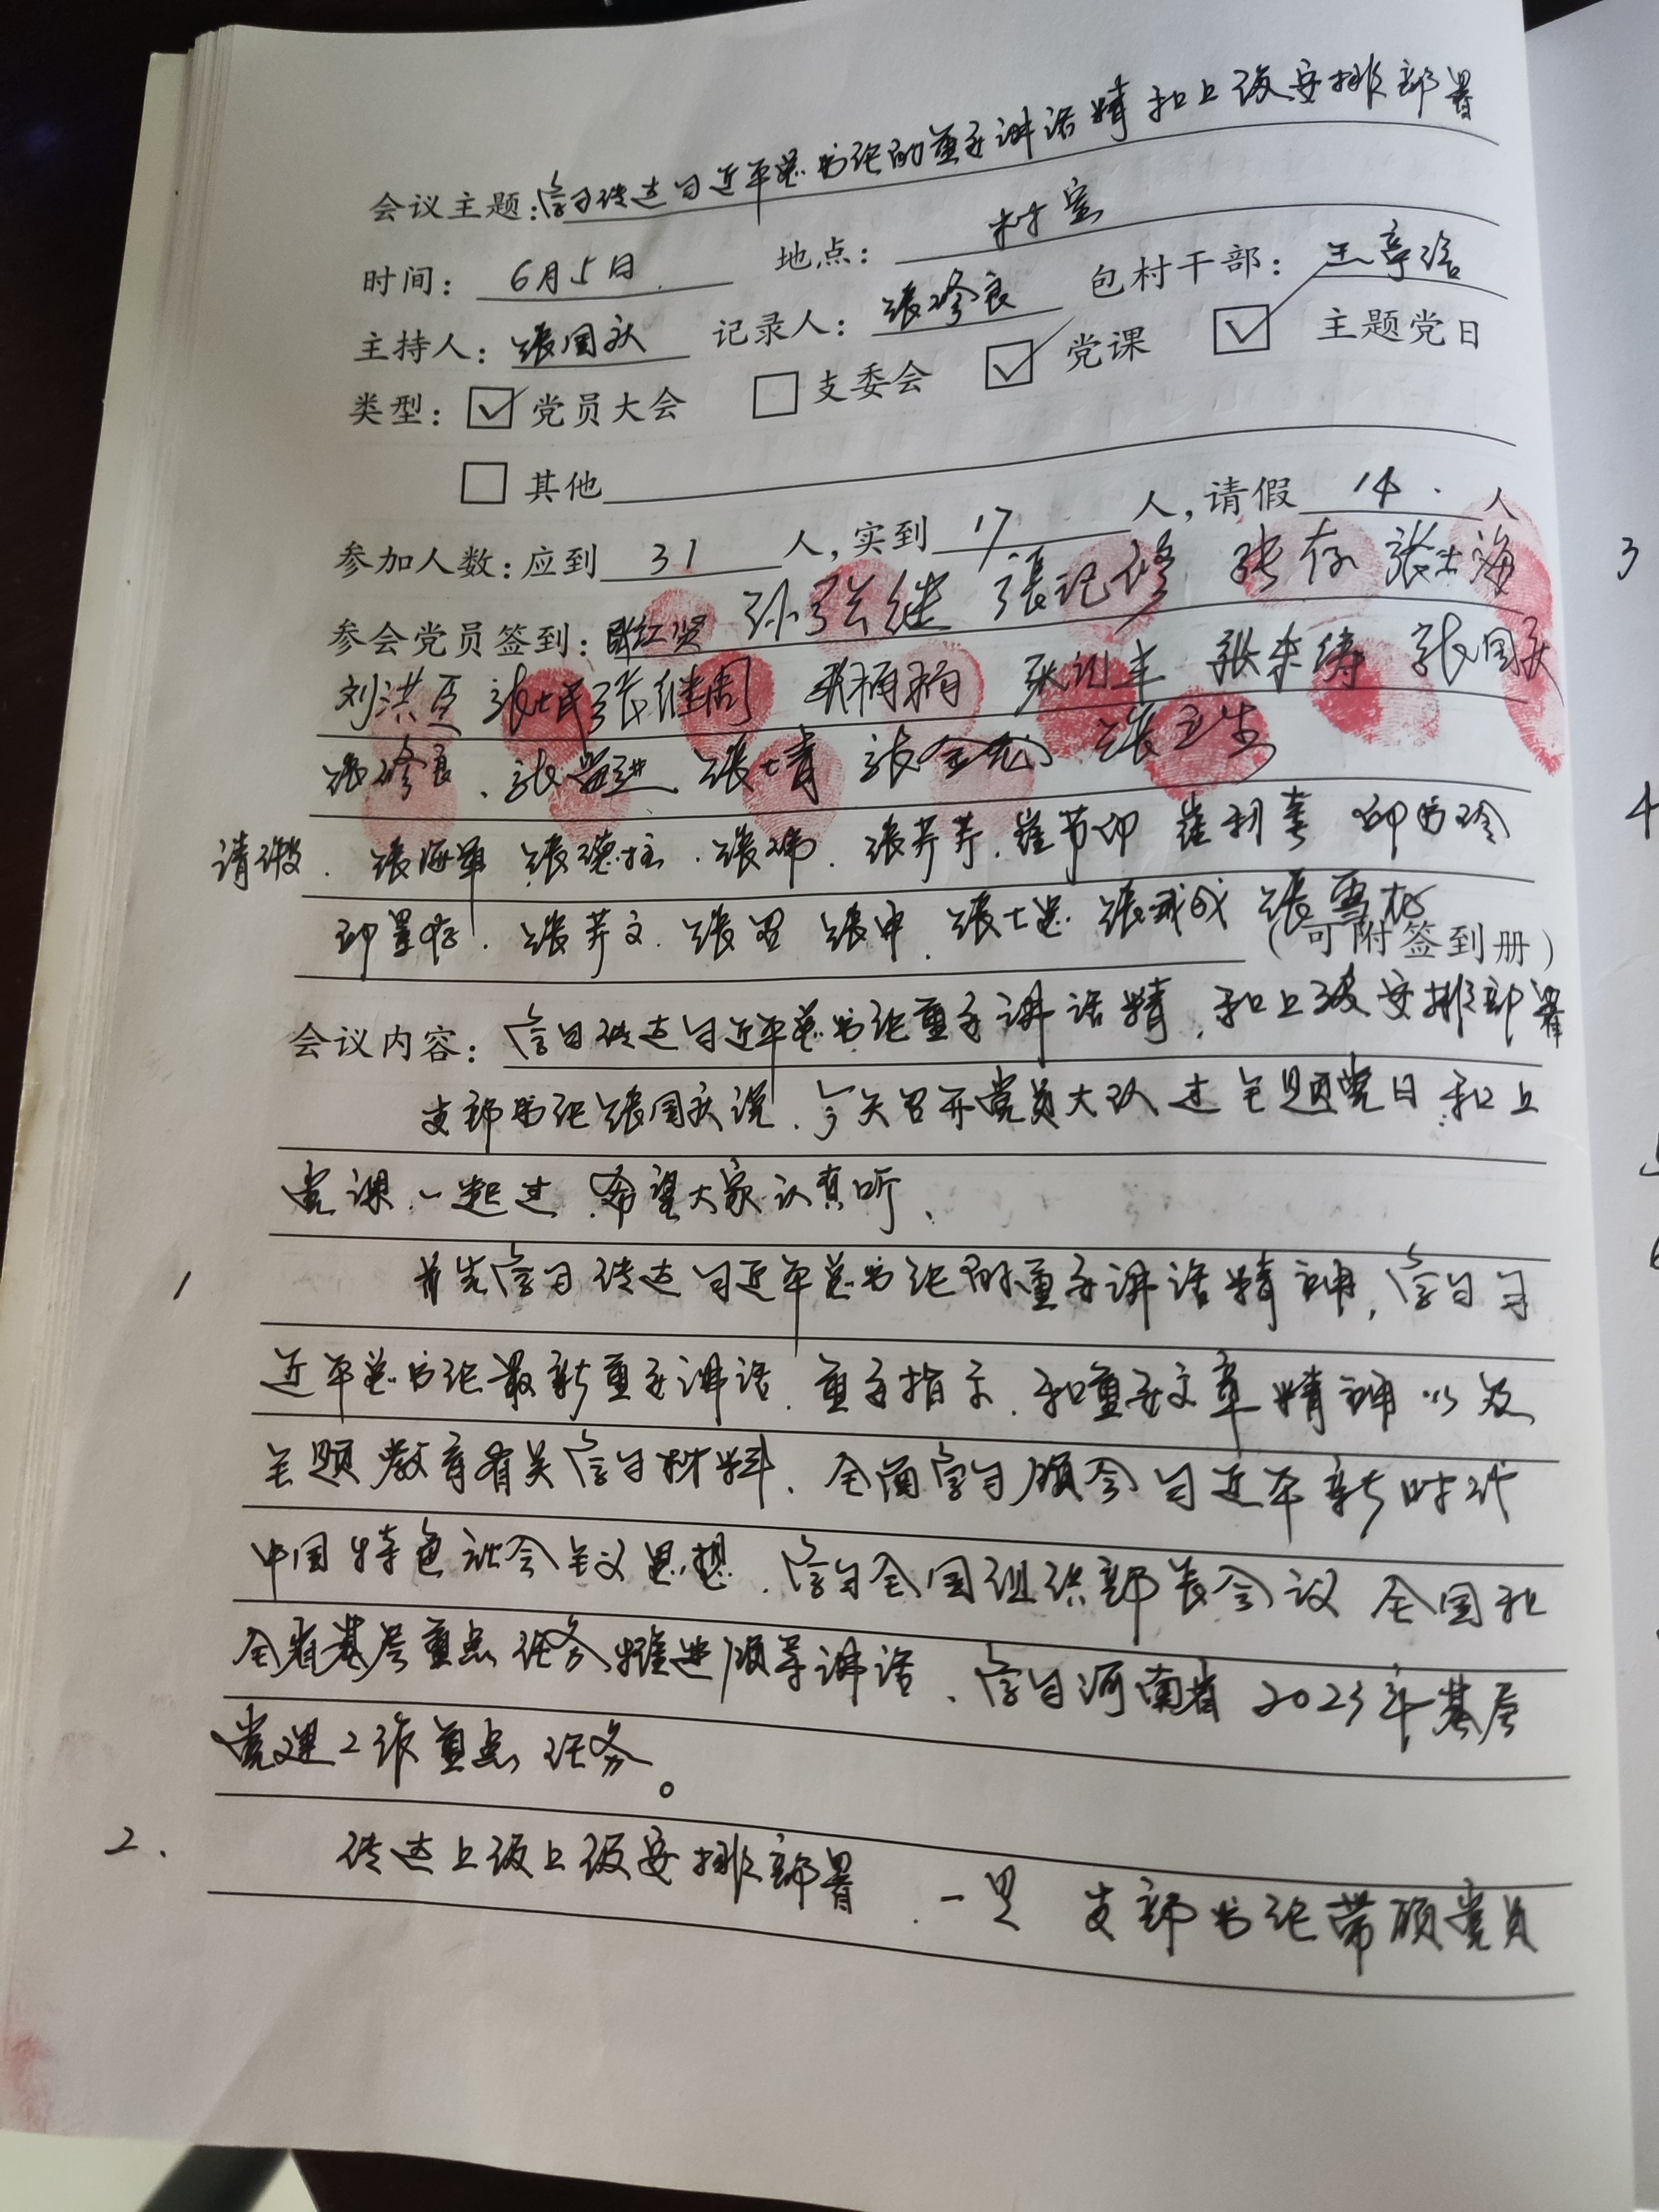 会议主题:学习传达习近平总书记的重要讲话精和上级安排部署
时间: 6月5日 地点: 村室
主持人: 张国庆 记录人: 张修良 包村干部: 王亭
类型: ☑ 党员大会 □ 支委会 ☑ 党课 ☑ 主题党日
□ 其他
参加人数:应到 31 人,实到 17 人,请假 14 人
参会党员签到: 张红贤 孙继 張记修 张存 张士海
刘洪 张继周 张国庆
张修良、张士青 张金
请假. 张海军 张德柱.张伟.张芹芹.崔节印 崔利 邱
邱.张芹文.张 张中.张士 张成 张雪
(可附签到册)
会议内容: 学习传达习近平总书记重要讲话精,和上级安排部署
支部书记张国庆说.今天召开党员大队过主题党日和上
党课.一起过.希望大家认真听、
1 首先学习传达习近平总书记的重要讲话精神,学习习
近平总书记最新重要讲话.重要指示.和重要文章精神以及
主题教育有关学习材料.全面学习领会习近平新时代
中国特色社会主义思想.学习全国组织部长会议 全国和
全省基层重点任务推进领导讲话、学习河南省2023年基层
党建工作重点任务。
2. 传达上级上级安排部署.一是 支部书记带领党员
3
4